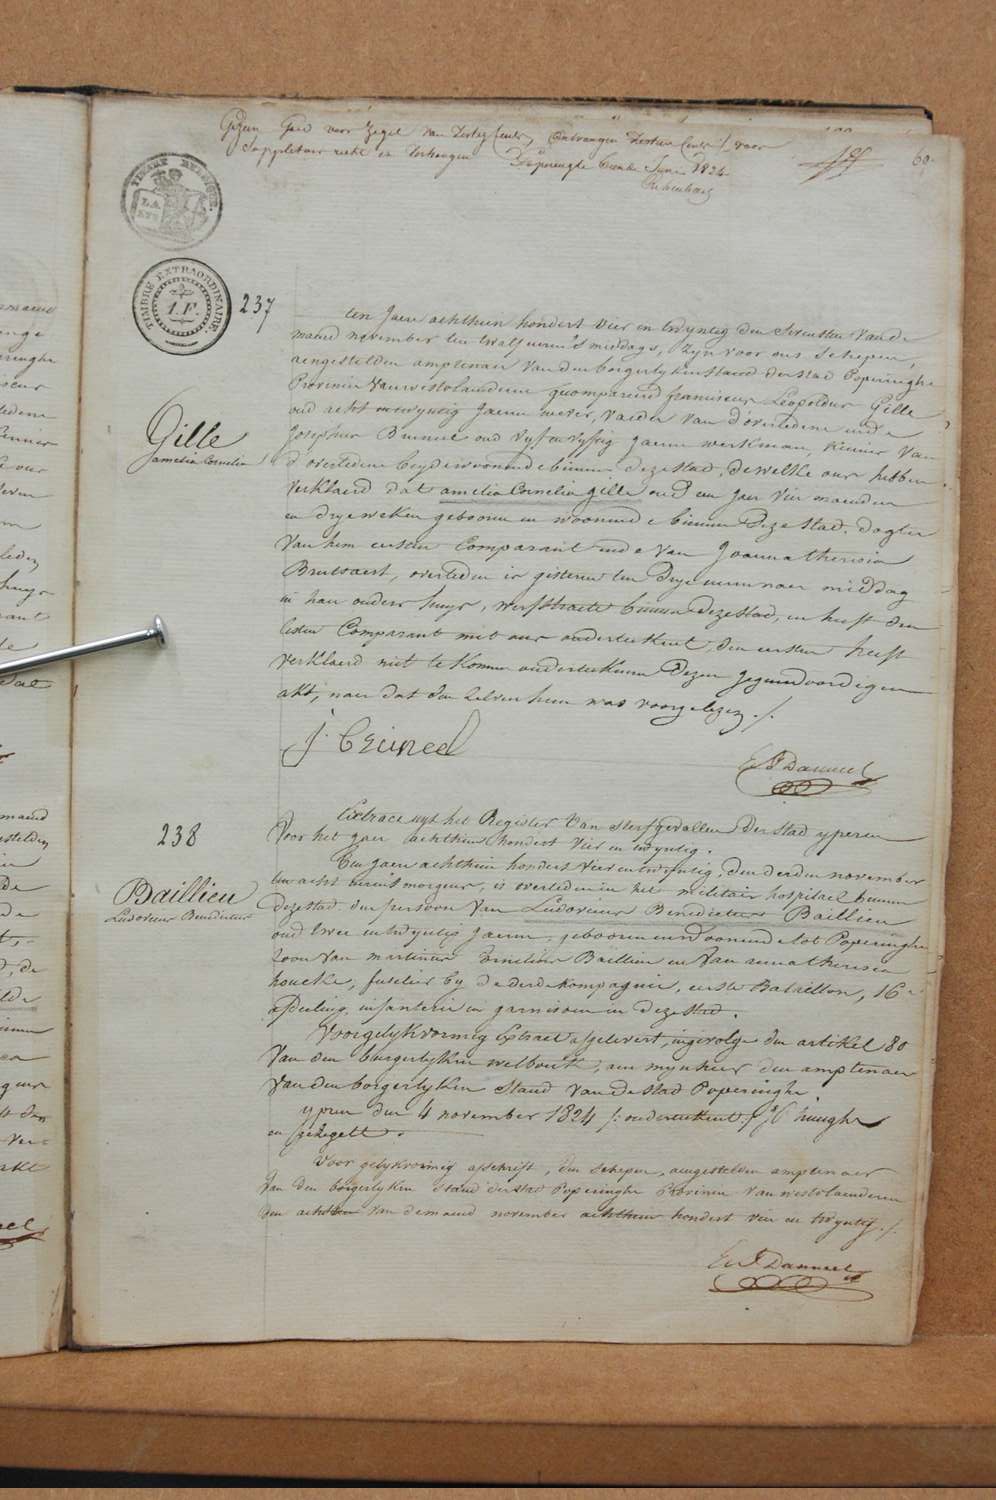 Gezien Goed voor Zegel van Dertig Cents, Ontvangen Dertien Cents voor
Suppletoir recht en Verhoogen Poperinghe Juni 1824
69
TIMBRE BELGIQUE
TIMBRE EXTRAORDINAIRE
1.F.
237
ten Jaere achthien hondert vier en twyntig den Sevensten van de
maend november ten twalf ueren 's middags, zyn voor ons Schepen,
aengestelden amptenaer van den borgerlyken stand der stad Poperinghe
Provincie van westvlaenderen gecompareerd franciscus Leopoldus Gille
oud acht entwyntig Jaeren wever, vaeder van d'overledene ende
Josephus Bruneel oud vyf en vyftig Jaeren werkman, Kenner van
d'overledene beyde woonende binnen deze stad, dewelke ons hebben
verklaerd dat amelia Cornelia gille oud een Jaer vier maenden
en drye weken gebooren en woonende binnen deze stad, dogter
van hem eersten Comparant ende van Joanna theresia
Brutsaert, overleden is gisteren ten drye ueren naer middag
in haer ouders huys, werfstraete binnen deze stad, en heeft den
lesten Comparant met ons onderteekent, den eersten heeft
verklaerd niet te konnen onderteekenen dezen jegenwoordigen
akt, naer dat den zelven hem was voorgelezen ./.
Gille
amelia Cornelia
J. Bruneel
Danneel
238
Extract uyt het Register van sterfgevallen der stad yperen
voor het jaer achthien hondert vier en twyntig.
Een jaer achthien hondert vier en twyntig, den derden november
ten acht ueren 's morgens, is overleden in het militair hospitael binnen
deze stad den persoon van Ludovicus Benedictus Baillieu
oud twee entwyntig Jaeren, gebooren en woonende tot Poperinghe
zoon van martinus Emelius Baillieu en van anna theresia
houcke, fuselier by de derde kompagnie, eerste Bataillon, 16e
afdeeling, infanterie in garnisoen in deze stad.
Voorgelykvormig Extract afgelevert, ingevolge den artikel 80
van den burgerlyken wetboek, aen mynheer den amptenaer
van den borgerlyken Stand van de stad Poperinghe
yperen den 4 november 1824 /: onderteekent :/
en gezegelt.
Baillieu
Ludovicus Benedictus
Voor gelykvormig afschrift, den schepen, aengestelden amptenaer
van den borgerlyken stand der stad Poperinghe Provincie van westvlaenderen
den achtsten van de maend november achthien hondert vier en twyntig ./.
Danneel